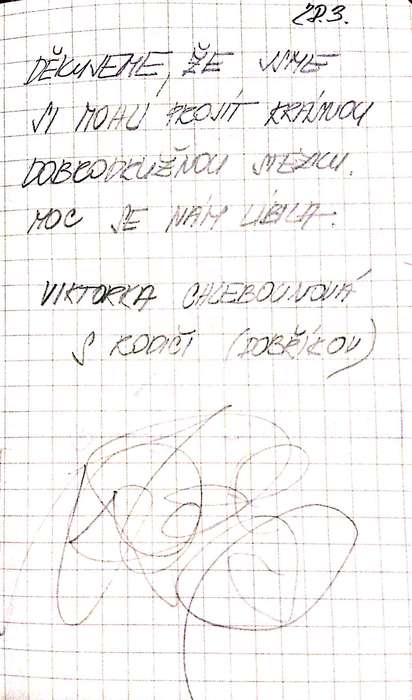 28.3.
DĚKUJEME, ŽE JSME
SI MOHLI PROJÍT KRÁSNOU
DOBRODRUŽNOU STEZKU.
MOC SE NÁM LÍBILA.
VIKTORKA CHLEBOUNOVÁ
S RODIČI (DOBŘÍKOV)